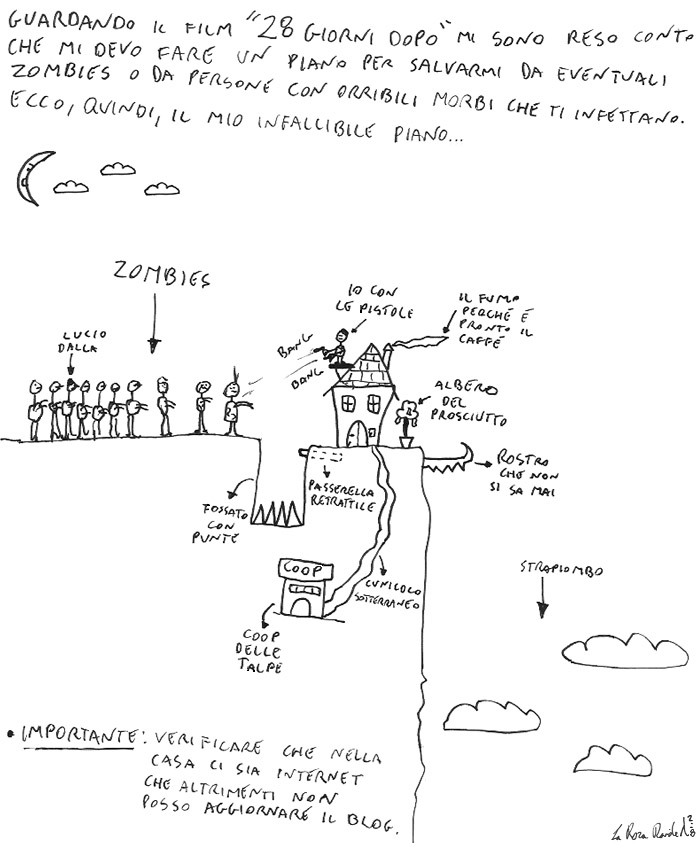 GUARDANDO IL FILM "28 GIORNI DOPO" MI SONO RESO CONTO
CHE MI DEVO FARE UN PIANO PER SALVARMI DA EVENTUALI
ZOMBIES O DA PERSONE CON ORRIBILI MORBI CHE TI INFETTANO.
ECCO, QUINDI, IL MIO INFALLIBILE PIANO...
ZOMBIES
LUCIO
DALLA
IO CON
LE PISTOLE
BANG
BANG
IL FUMO
PERCHÉ È
PRONTO IL
CAFFÈ
ALBERO
DEL
PROSCIUTTO
ROSTRO
CHE NON
SI SA MAI
PASSERELLA
RETRATTILE
FOSSATO
CON
PUNTE
COOP
CUNICOLO
SOTTERRANEO
COOP
DELLE
TALPE
STRAPIOMBO
• IMPORTANTE: VERIFICARE CHE NELLA
CASA CI SIA INTERNET
CHE ALTRIMENTI NON
POSSO AGGIORNARE IL BLOG.
La Rosa Davide